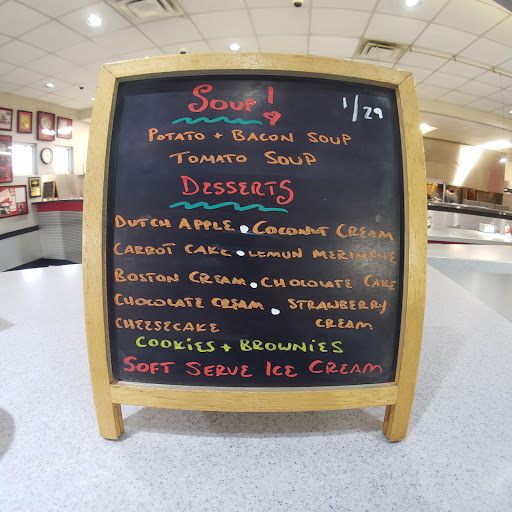 Soup!
1/29
Potato + Bacon Soup
Tomato Soup
Desserts
Dutch Apple • Coconut Cream
Carrot Cake • Lemun Meringue
Boston Cream • Chocolate Cake
Chocolate Cream • Strawberry
Cheesecake Cream
Cookies + Brownies
Soft Serve Ice Cream